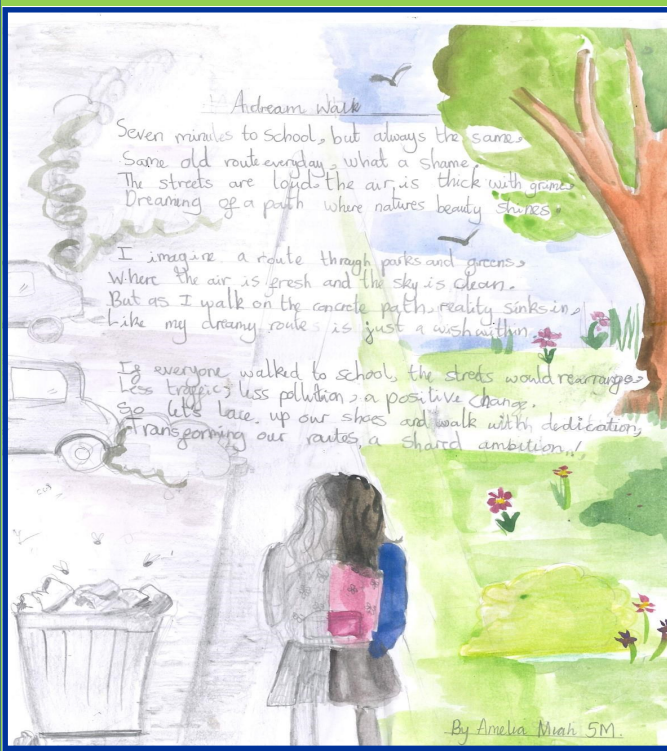 A dream walk
Seven minutes to school, but always the same,
Same old route everyday, what a shame.
The streets are loyd, the air is thick with grime,
Dreaming of a path where natures beauty shines.
I imagine a route through parks and greens,
Where the air is fresh and the sky is clean.
But as I walk on the concrete path, reality sinks in,
Like my dreamy routes is just a wish within.
If everyone walked to school, the streets would rearrange,
Less traffic, less pollution, a positive change.
So let's lace up our shoes and walk with dedication,
Transforming our routes, a shared ambition!
By Amelia Miah 5M.